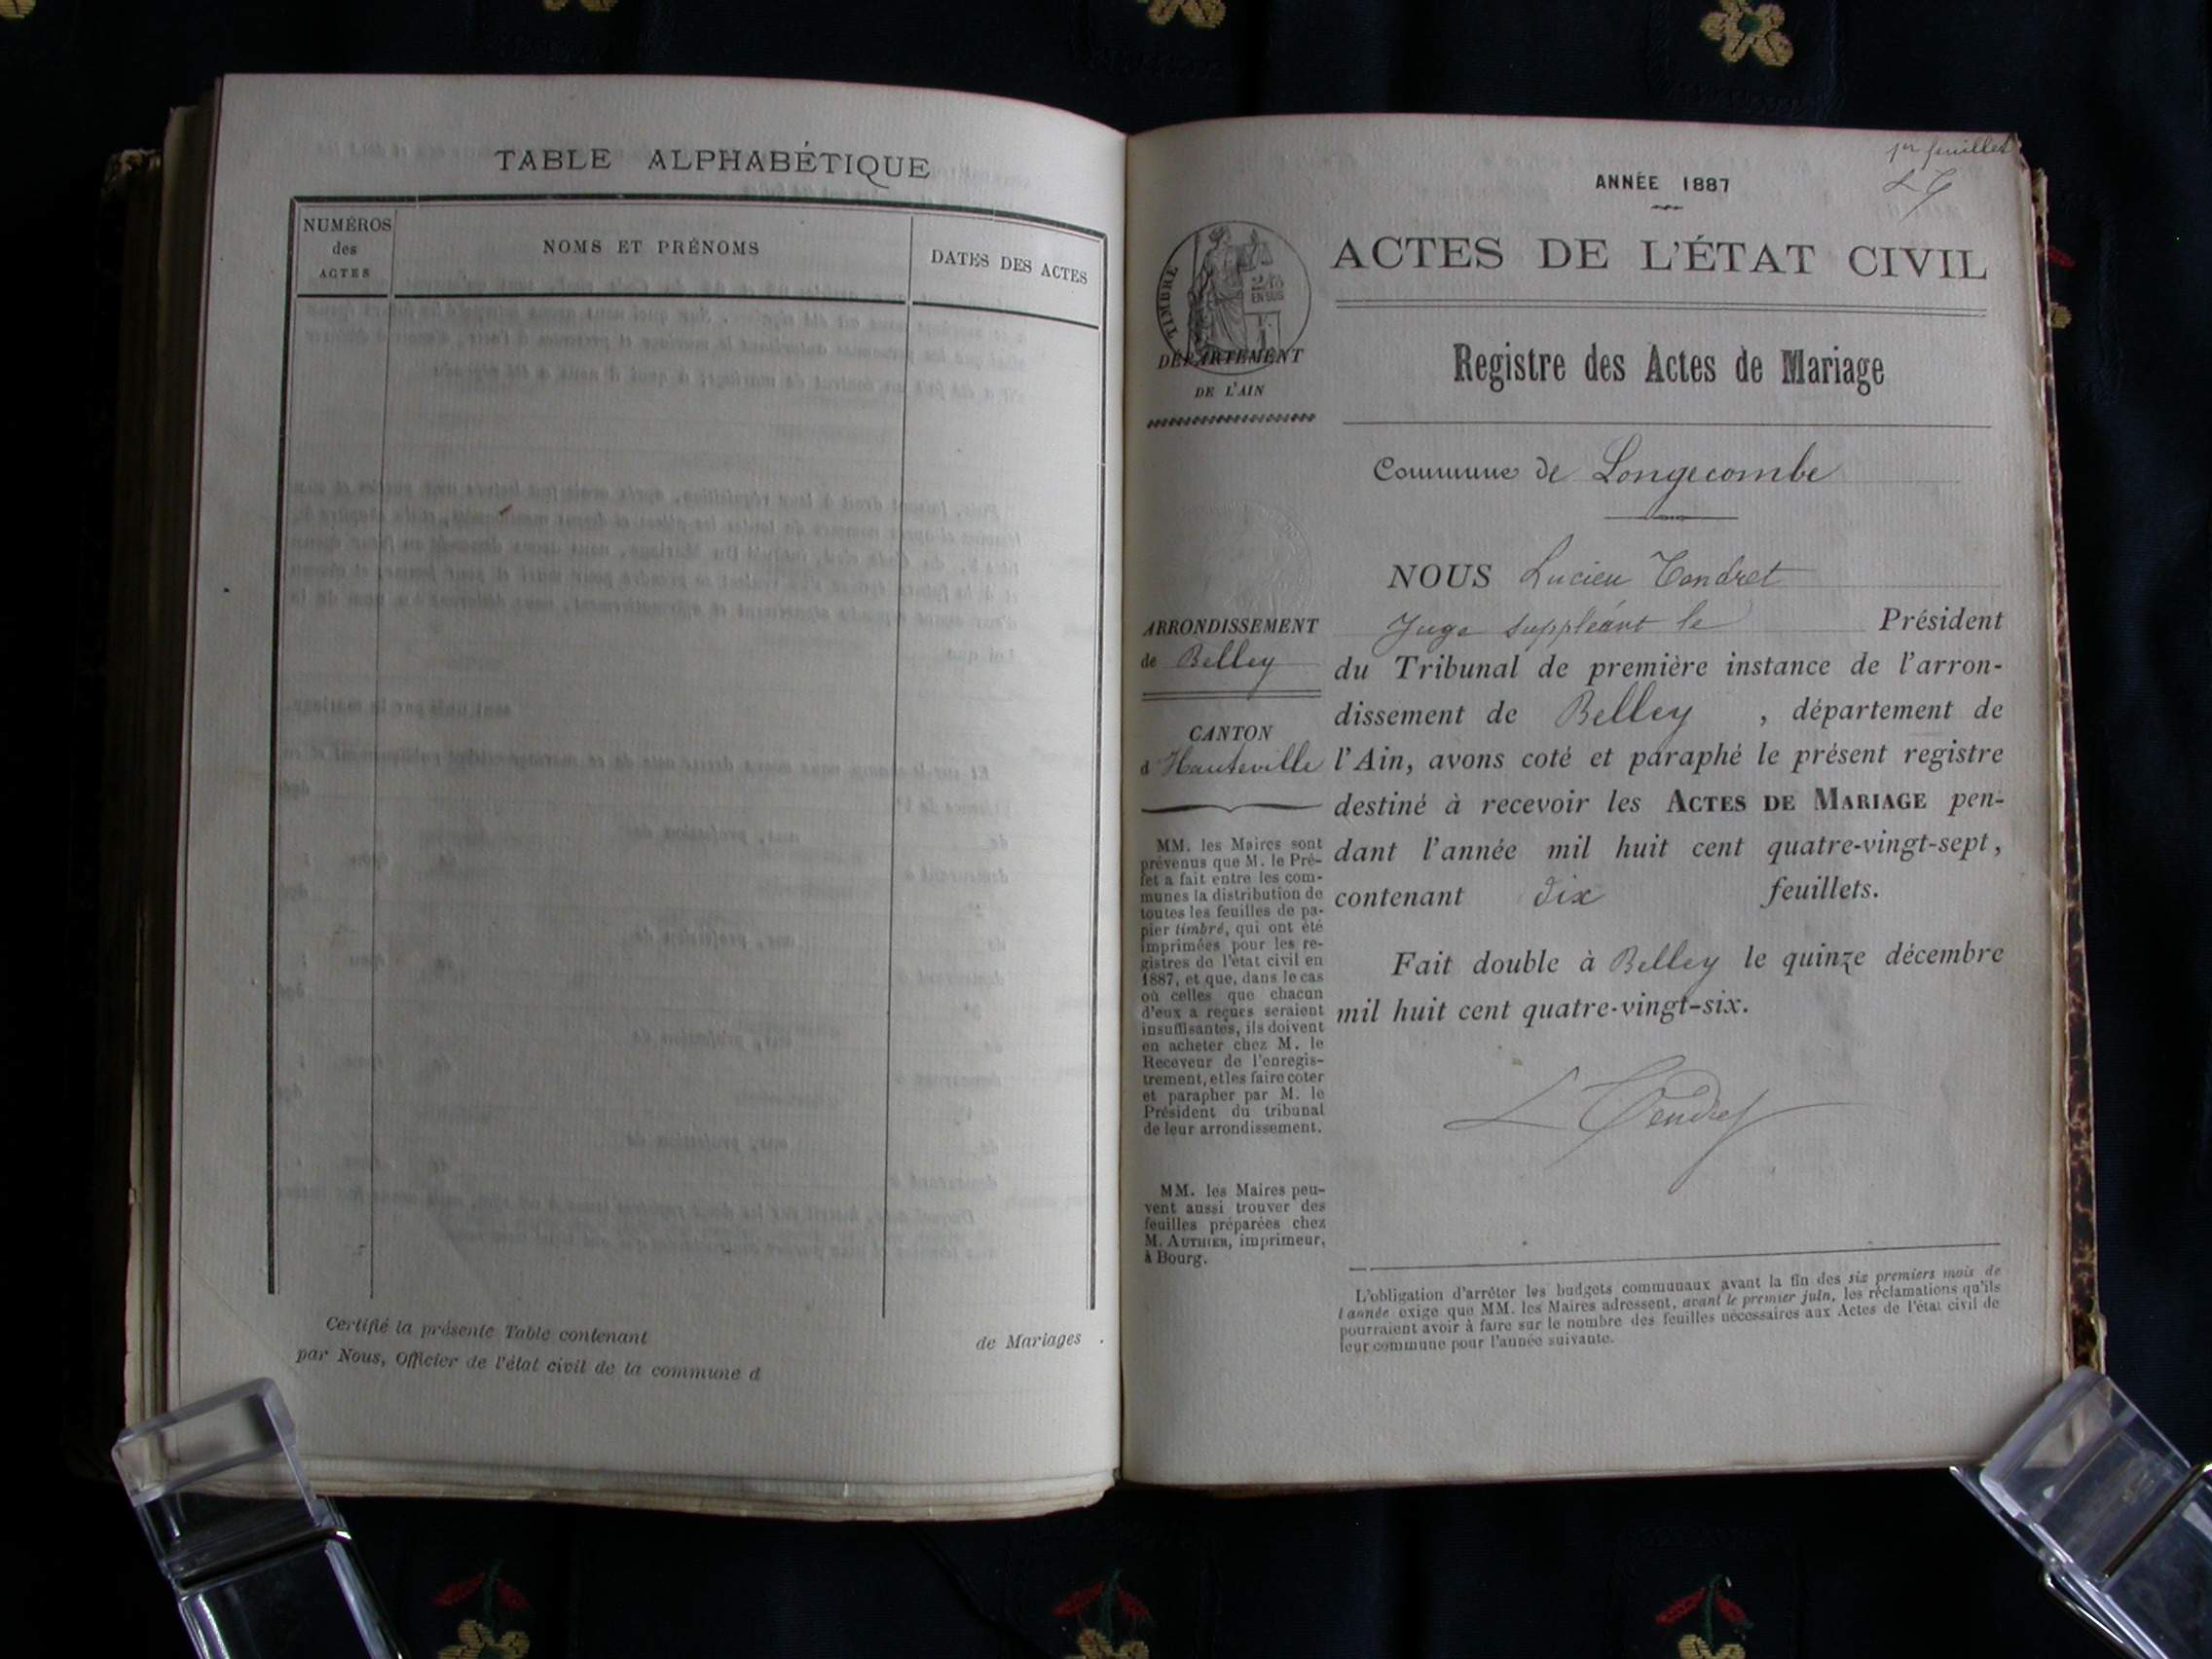 TABLE ALPHABÉTIQUE
NUMÉROS
des
ACTES
NOMS ET PRÉNOMS
DATES DES ACTES
Certifié la présente Table contenant de Mariages .
par Nous, Officier de l'état civil de la commune d
1er feuillet
ANNÉE 1887
TIMBRE
2/10
EN SUS
ACTES DE L'ÉTAT CIVIL
DÉPARTEMENT
DE L'AIN
Registre des Actes de Mariage
Commune de Longecombe
NOUS Lucien Tendret
Juge suppléant le Président
ARRONDISSEMENT
de Belley
du Tribunal de première instance de l'arron-
dissement de Belley , département de
CANTON
d Hauteville
l'Ain, avons coté et paraphé le présent registre
destiné à recevoir les ACTES DE MARIAGE pen-
dant l'année mil huit cent quatre-vingt-sept,
contenant dix feuillets.
Fait double à Belley le quinze décembre
mil huit cent quatre-vingt-six.
L Tendret
MM. les Maires sont
prévenus que M. le Pré-
fet a fait entre les com-
munes la distribution de
toutes les feuilles de pa-
pier timbré, qui ont été
imprimées pour les re-
gistres de l'état civil en
1887, et que, dans le cas
où celles que chacun
d'eux a reçues seraient
insuffisantes, ils doivent
en acheter chez M. le
Receveur de l'enregis-
trement, et les faire coter
et parapher par M. le
Président du tribunal
de leur arrondissement.
MM. les Maires peu-
vent aussi trouver des
feuilles préparées chez
M. AUTHIER, imprimeur,
à Bourg.
L'obligation d'arrêter les budgets communaux avant la fin des six premiers mois de
l'année exige que MM. les Maires adressent, avant le premier juin, les réclamations qu'ils
pourraient avoir à faire sur le nombre des feuilles nécessaires aux Actes de l'état civil de
leur commune pour l'année suivante.